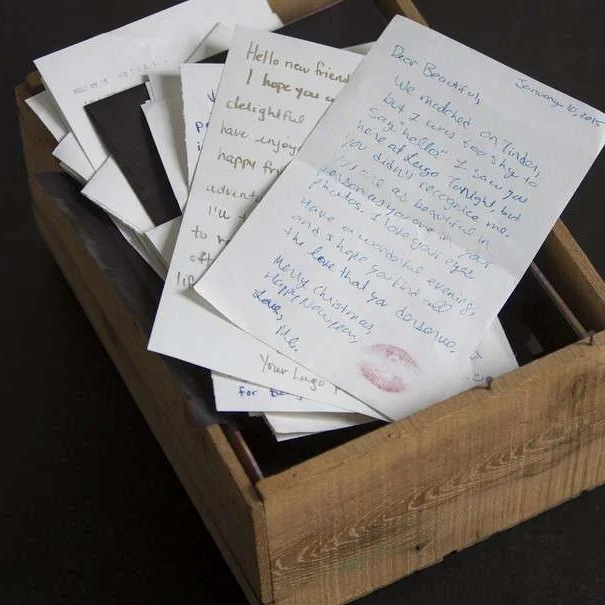 January 10, 2015
Dear Beautiful,
We matched on Tinder,
but I was too shy to
say "hello". I saw you
here at Lugo tonight, but
you didn't recognize me.
You are as beautiful in
person as you are in your
photos. I love your eyes.
Have a wonderful evening,
and I hope you find all of
the love that you deserve.
Merry Christmas,
Happy New Year,
Love,
Me.
Hello new friend
I hope you
delightful
have enjoye
happy fri
adventu
I'll
to
oft
lip
Your Lugo
for